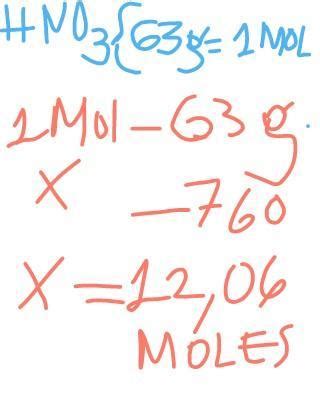 HNO3{63g=1MOL
1Mol-63g.
X -760
X=12,06
MOLES